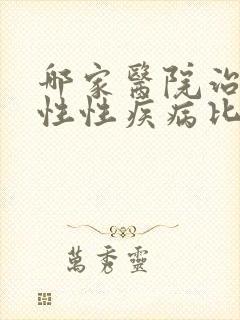 那家醫院治
性性疾病比
萬秀靈